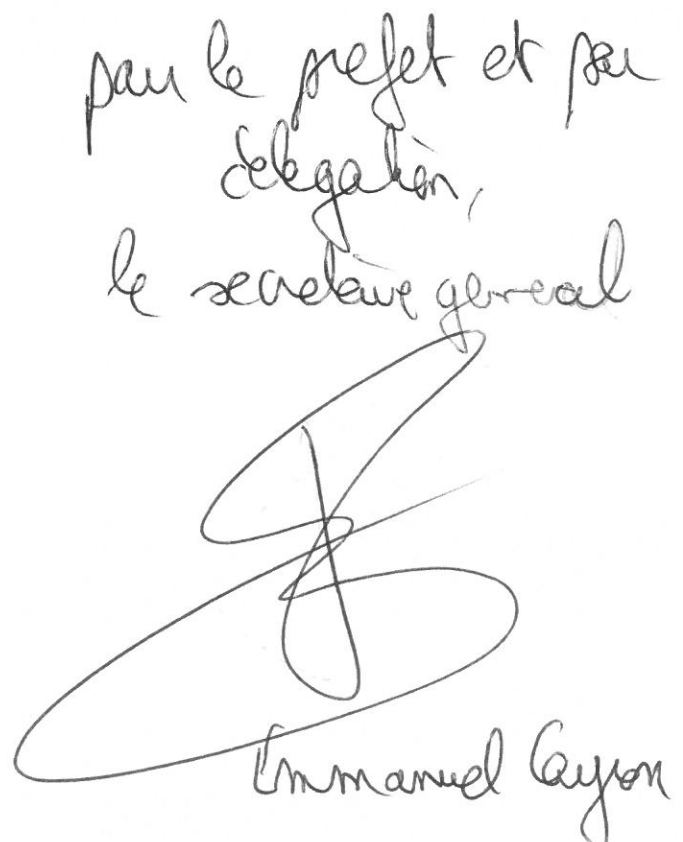 pour le préfet et par
délégation,
le secrétaire général
Emmanuel Cayron